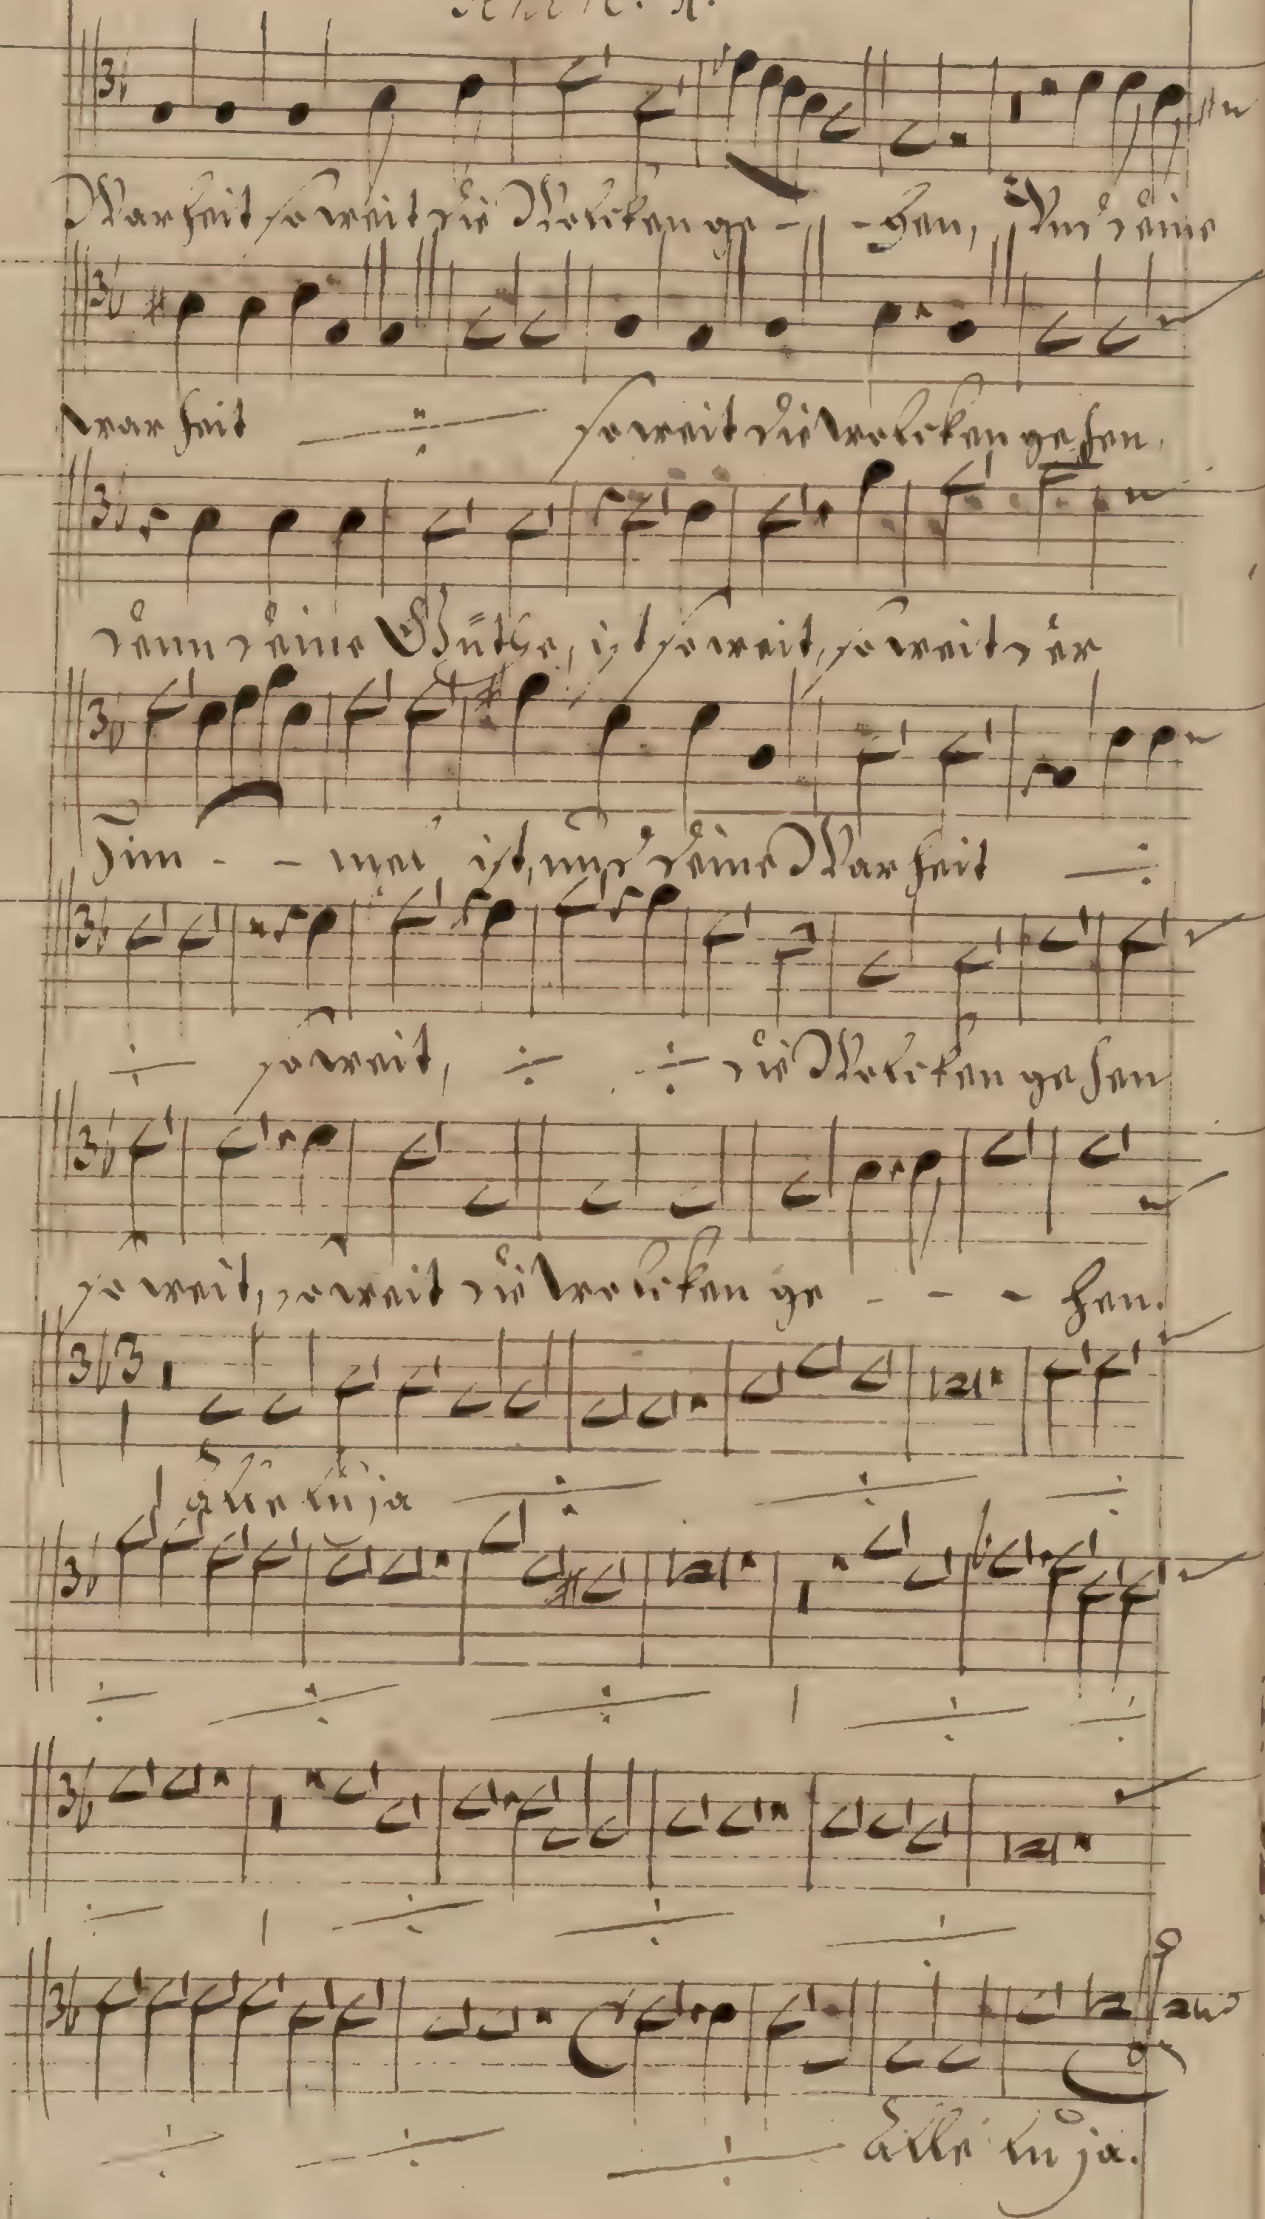 Warheit so weit die Wolcken ge - - hen, Und deine
warheit ÷ so weit die wolcken gehen,
denn deine Güthe, ist so weit, so weit der
Him - - mel ist, und deine Warheit ÷
÷ so weit, ÷ ÷ die Wolcken gehen
so weit, so weit die wolcken ge - - - hen.
Alleluja ÷ ÷ ÷
÷ ÷ ÷ | ÷ ÷
÷ | ÷ ÷ ÷
÷ ÷ ÷ Alleluja.